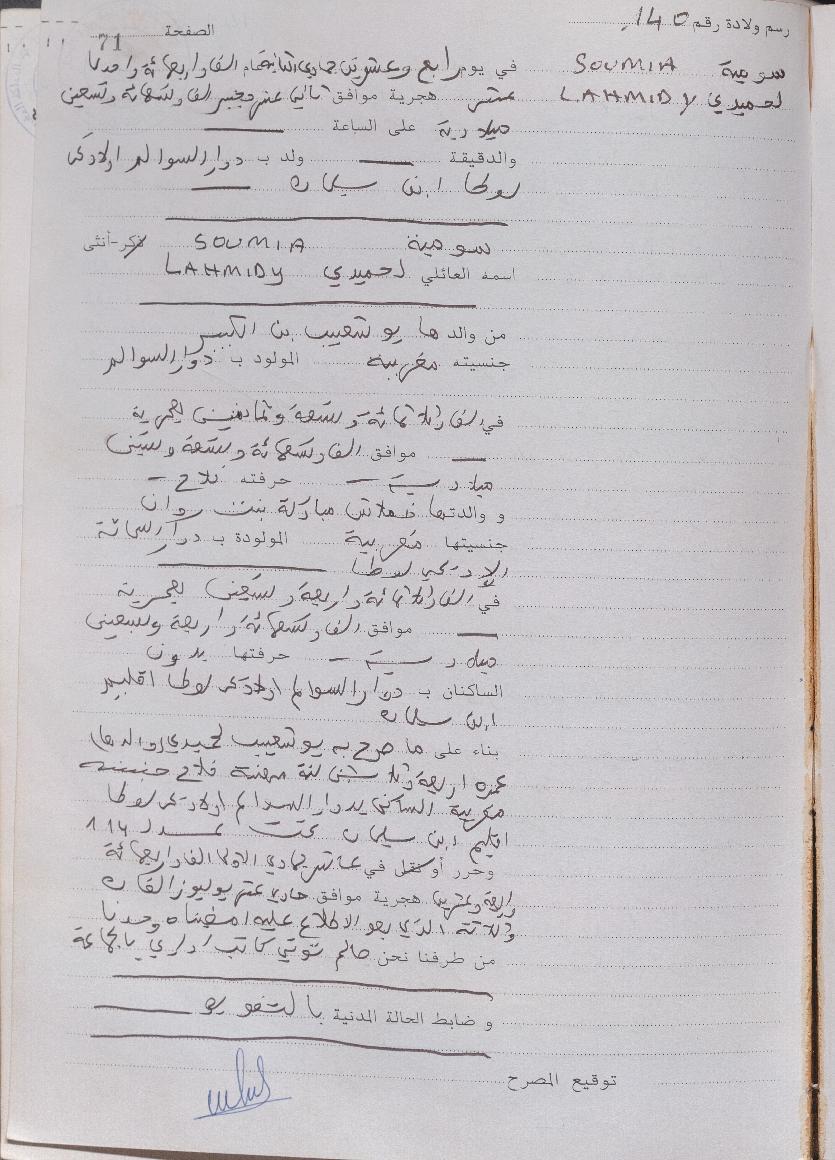 رسم ولادة رقم 140
الصفحة 71
سومية SOUMIA
لحميدي LAHMIDY
في يوم رابع وعشرين جمادى الثانية عام ألف وأربعمائة وإحدى
عشر هجرية موافق ثاني عشر الف وتسعمائة وتسعين
ميلادية على الساعة
والدقيقة ولد ب دوار السوالم اولاد
لوطا ابن سليمان
سومية SOUMIA ذكر-أنثى
اسمه العائلي لحميدي LAHMIDY
من والدها بوشعيب بن الكبير
جنسيته مغربية المولود ب دوار السوالم
في الف وثلاثمائة وتسعة وثمانين هجرية
موافق الف وتسعمائة وتسعة وستين
ميلادية حرفته فلاح
و والدتها مباركة بنت
جنسيتها مغربية المولودة ب دوار
لوطا
في الف وثلاثمائة واربعة وتسعين هجرية
موافق الف وتسعمائة واربعة وسبعين
ميلادية حرفتها بدون
الساكنان ب دوار السوالم اولاد لوطا اقليم
ابن سليمان
بناء على ما صرح به بوشعيب لحميدي والدها
عمره اربعة وثلاثين سنة مهنته فلاح جنسيته
مغربية الساكن بدوار السوالم اولاد لوطا
اقليم ابن سليمان تحت عدد 114
وحرر أو نقل في عاشر جمادي الاولى الف واربعمائة
واربعة وعشرين هجرية موافق حادي عشر يوليوز الفان
وثلاثة الذي بعد الاطلاع عليه امضيناه وحدنا
من طرفنا نحن كاتب اداري بالجماعة
و ضابط الحالة المدنية بالتفويض
توقيع المصرح